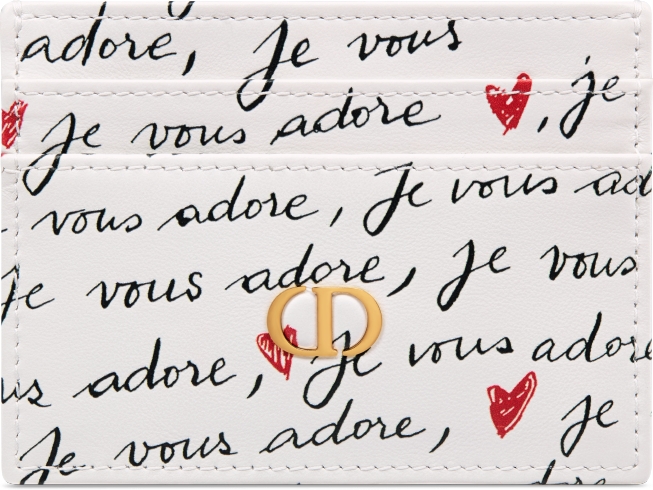 adore, Je vous
Je vous adore , je
vous adore, Je vous ad
Je vous adore, Je vous
CD
us adore, Je vous adore
Je vous adore, je